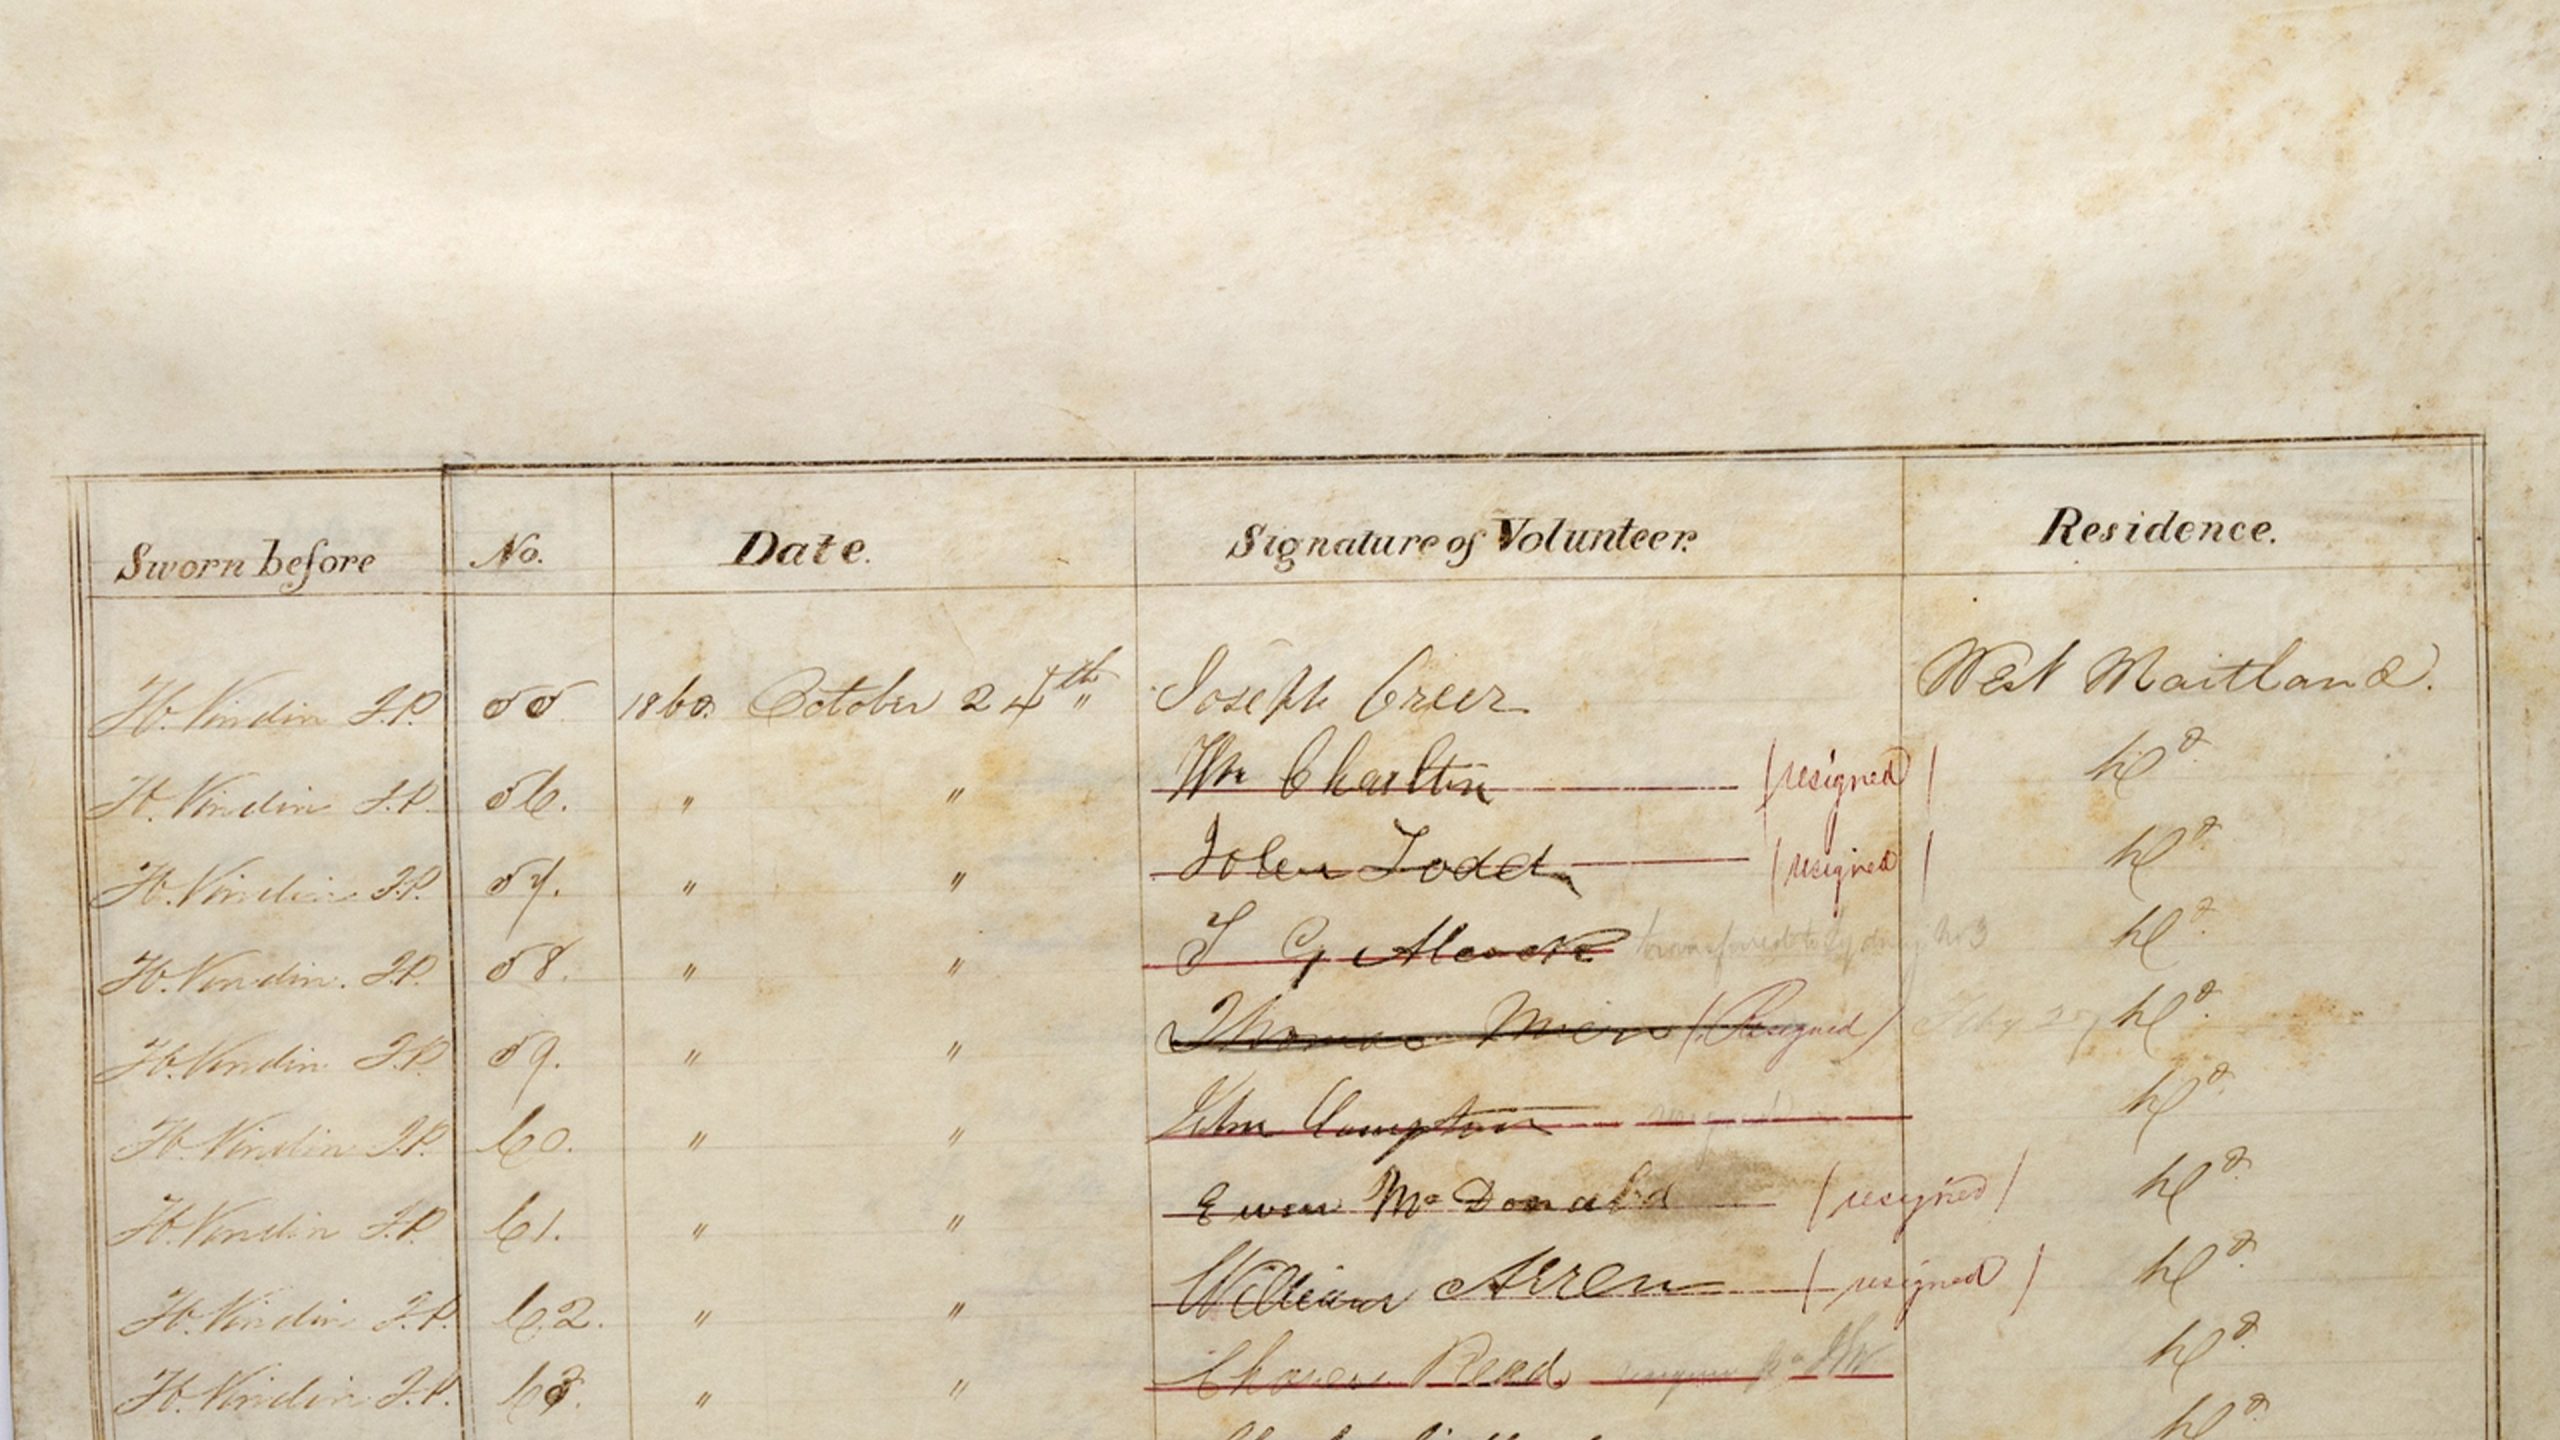 Sworn before No. Date. Signature of Volunteer. Residence.
H. Vindin J.P. 55 1860. October 24th " Joseph Greer West Maitland.
H. Vindin J.P. 56. " " Wm Charlton (resigned) Do.
H. Vindin J.P. 57. " " John Todd (resigned) Do.
H. Vindin. J.P. 58. " " T G Alcock transferred to Sydney No 3 Do.
H. Vindin J.P. 59. " " Thomas (Resigned) Do.
H. Vindin J.P. 60. " " John Compton resigned Do.
H. Vindin J.P. 61. " " Ewen McDonald (resigned) Do.
H. Vindin J.P. 62. " " William Arren (resigned) Do.
H. Vindin J.P. 63. " " Read Do.
Do.